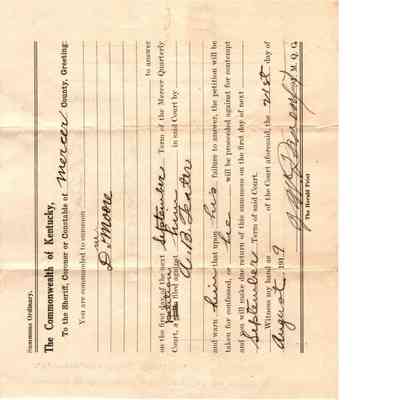 Summons Ordinary.
The Commonwealth of Kentucky,
To the Sheriff, Coroner or Constable of Mercer County, Greeting:
You are commanded to summon
D. Moore
to answer
on the first day of the next September Term of the Mercer Quarterly
Court, a petition filed against him in said Court by
A. B.
and warn him that upon his failure to answer, the petition will be
taken for confessed, or he will be proceeded against for contempt
and you will make due return of this summons on the first day of next
September Term of said Court.
Witness my hand as of the Court aforesaid, the 21st day of
August 1919
J. M. Q. C.
The Herald Print